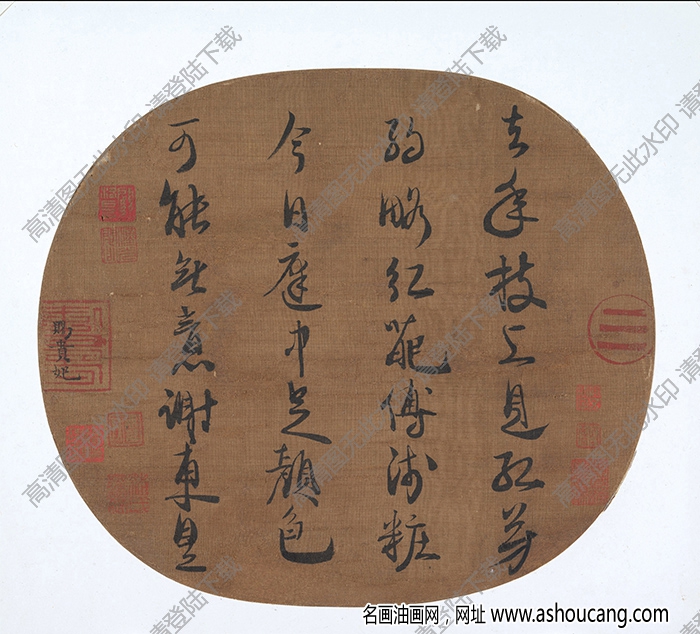 去年枝上見紅芳
約略紅葩傅淺粧
今日庭中足顏色
可能無意謝東皇
賜貴妃
高清图无此水印 请登陆下载
名画油画网，网址 www.ashoucang.com